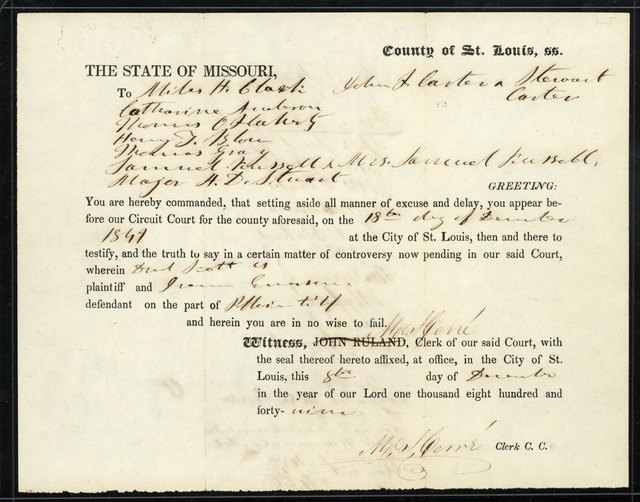 County of St. Louis, ss.
THE STATE OF MISSOURI,
To Miles H. Clark John A. Carter & Stewart
Catharine Anderson Carter
Thomas O'Flaherty
Henry T. Blow
Thomas Gray
Samuel Russell & Mrs. Samuel Russell,
Major H. D. Stuart
GREETING:
You are hereby commanded, that setting aside all manner of excuse and delay, you appear be-
fore our Circuit Court for the county aforesaid, on the 18th day of December
1849 at the City of St. Louis, then and there to
testify, and the truth to say in a certain matter of controversy now pending in our said Court,
wherein Dred Scott is
plaintiff and Irene Emerson
defendant on the part of Plaintiff
and herein you are in no wise to fail.
Witness, JOHN RULAND, Clerk of our said Court, with
the seal thereof hereto affixed, at office, in the City of St.
Louis, this 8th day of December
in the year of our Lord one thousand eight hundred and
forty- nine
Cerré Clerk C. C.